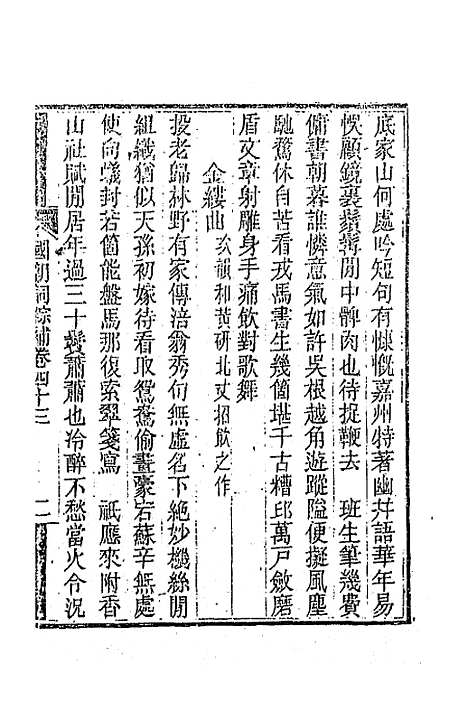 底家山何處吟短句有慷慨嘉州特著幽幷語華年易
恨顧鏡裏鬚鬢閒中髀肉也待捉鞭去　班生筆幾費
傭書朝暮誰憐意氣如許吳根越角遊蹤隘便擬風塵
馳騖休自苦看戎馬書生幾箇堪千古糟邱萬戸斂磨
盾文章射雕身手痛飲對歌舞
金縷曲 次韻和黃研北丈招飲之作
投老歸林野有家傳涪翁秀句無虛名下絶妙機絲閒
組織猶似天孫初嫁待看取鴛鴦偷畫豪宕蘇辛無處
使向蟻封若箇能盤馬那復索翠箋寫　祇應來附香
山社賦閒居年過三十鬢蕭蕭也冷醉不愁當火令況
國朝詞綜補卷四十三
二